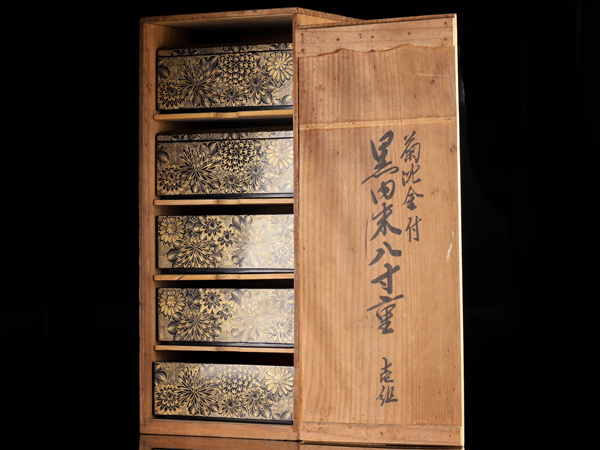 菊沈金付
黒内朱八寸重
壱組